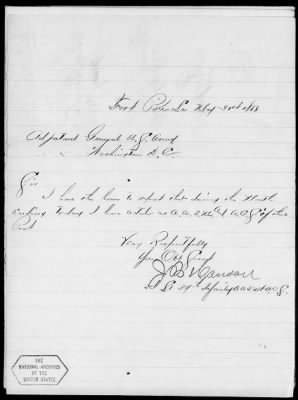 Fort Pike La May 31st 1868
Adjutant General U.S. Army
Washington D.C.
Sir
I have the honor to report that during the Month
ending today I have acted as A.A.Q.M. & A.C.S. of this
Post
Very Respectfully
Your Obt Servt
2d Lt 39th Infantry
THE
NATIONAL ARCHIVES
OF THE
UNITED STATES